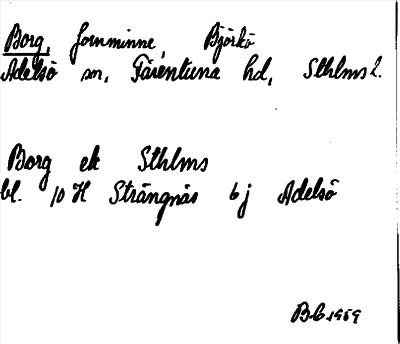 Borg, fornminne, Björkö
Adelsö sn, Färentuna hd, Sthlms l.
Borg ek Sthlms
bl. 10 H Strängnäs 6 j Adelsö
B.C 1959